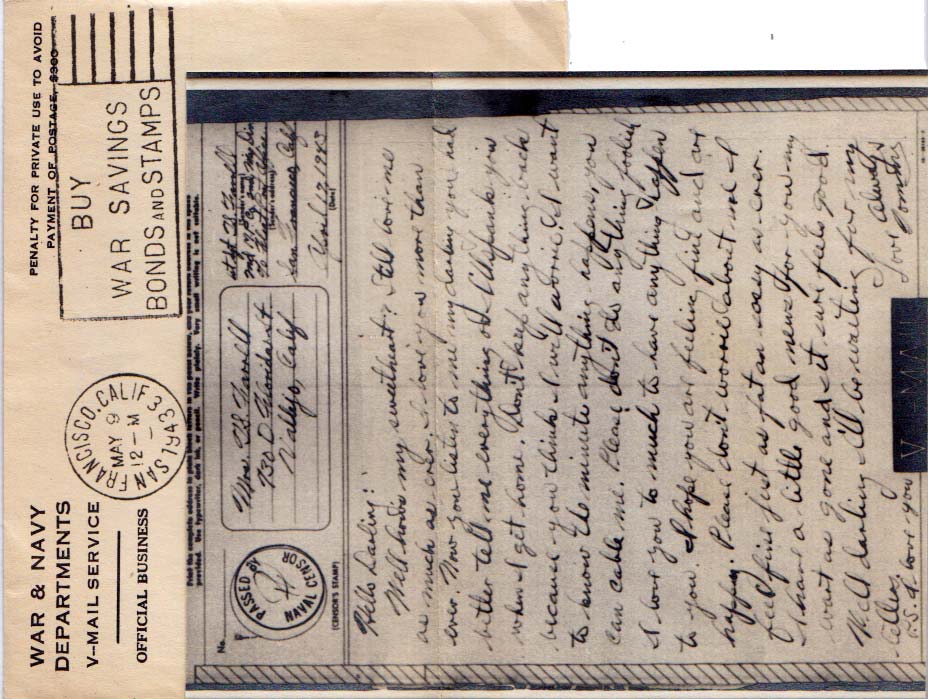 WAR & NAVY
DEPARTMENTS
V-MAIL SERVICE
OFFICIAL BUSINESS
SAN FRANCISCO, CALIF. 33
MAY 9
12 - M
1943
BUY
WAR SAVINGS
BONDS AND STAMPS
PENALTY FOR PRIVATE USE TO AVOID
PAYMENT OF POSTAGE, $300
Print the complete address in plain block letters in the panel below, and your return address in the space
provided. Use typewriter, dark ink, or pencil. Write plainly. Very small writing is not suitable.
No.
PASSED BY
NAVAL CENSOR
(CENSOR'S STAMP)
Mrs.
730 D
Vallejo, Calif
(Sender's name)
(Sender's address)
San Francisco, Calif
12 1943
(Date)
Hello Darling:
Well how's my sweetheart? Still love me
as much as ever. I love you more than
ever. Now you listen to me my darling you had
better tell me everything or I'll spank you
when I get home. Don't keep anything back
because you think I will worrie. I want
to know the minute anything happens, you
can cable me. Please don't do anything foolish
I love you to much to have anything happen
to you. I hope you are feeling fine and are
happy. Please don't worrie about me I
feel fine just as fat an sassy as ever.
I have a little good news for you my
wart is gone and it sure feels good.
Well darling I'll be waiting for my
P.S. I love you
Always
Love
V-MAIL